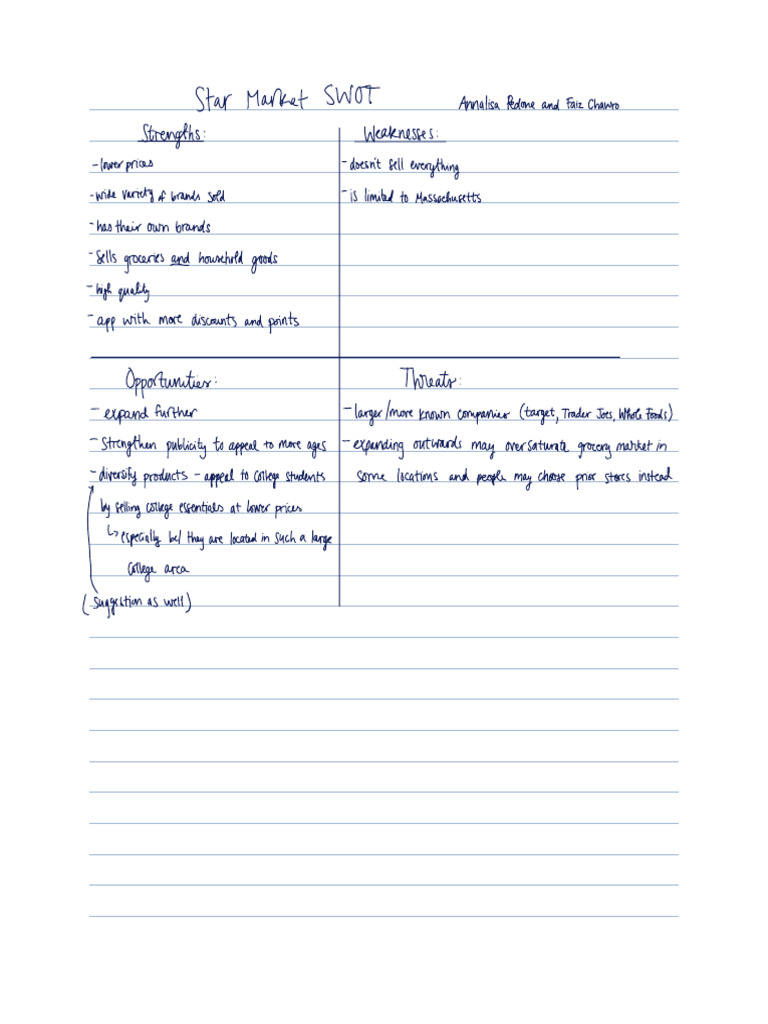 Star Market SWOT
Annalisa Pedone and Faiz Chawro
Strengths:
- lower prices
- wide variety of brands sold
- has their own brands
- Sells groceries and household goods
- high quality
- app with more discounts and points
Weaknesses:
- doesn't sell everything
- is limited to Massachusetts
Opportunities:
- expand further
- Strengthen publicity to appeal to more ages
- diversify products - appeal to college students
by selling college essentials at lower prices
↳ especially bc/ they are located in such a large
college area
(suggestion as well)
Threats:
- larger/more known companies (target, Trader Joes, Whole Foods)
- expanding outwards may oversaturate grocery market in
some locations and people may choose prior stores instead